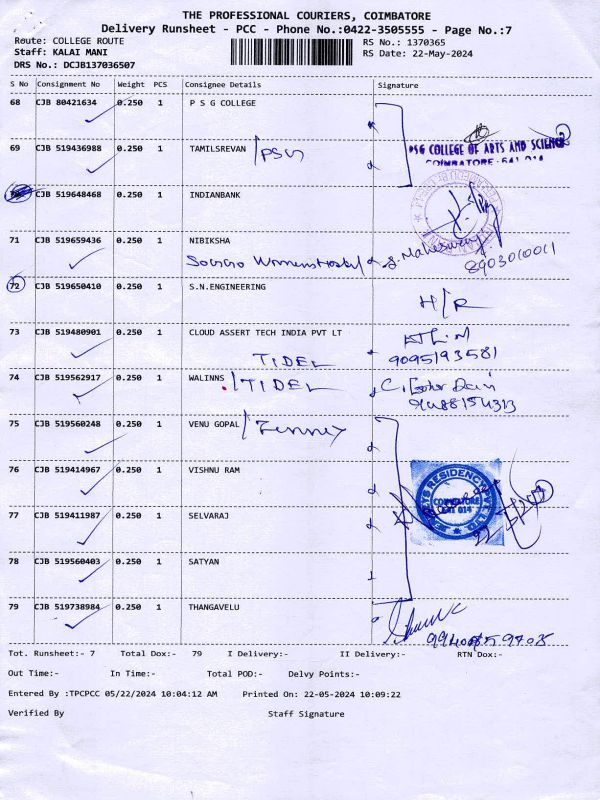 THE PROFESSIONAL COURIERS, COIMBATORE
Delivery Runsheet - PCC - Phone No.:0422-3505555 - Page No.:7
Route: COLLEGE ROUTE RS No.: 1370365
Staff: KALAI MANI RS Date: 22-May-2024
DRS No.: DCJB137036507
S No Consignment No Weight PCS Consignee Details Signature
68 CJB 80421634 0.250 1 P S G COLLEGE
69 CJB 519436988 0.250 1 TAMILSREVAN PSG
PSG COLLEGE OF ARTS AND SCIENCE
COIMBATORE - 641 014
CJB 519648468 0.250 1 INDIANBANK
71 CJB 519659436 0.250 1 NIBIKSHA
Womens Hostel S. Maheswary
8903010011
72 CJB 519650410 0.250 1 S.N.ENGINEERING
H/R
73 CJB 519480901 0.250 1 CLOUD ASSERT TECH INDIA PVT LT
TIDEL 9095193581
74 CJB 519562917 0.250 1 WALINNS / TIDEL
9488154313
75 CJB 519560248 0.250 1 VENU GOPAL
76 CJB 519414967 0.250 1 VISHNU RAM
RESIDENCY PVT. LTD
COIMBATORE
641 014
77 CJB 519411987 0.250 1 SELVARAJ
78 CJB 519560403 0.250 1 SATYAN
79 CJB 519738984 0.250 1 THANGAVELU
Tot. Runsheet:- 7 Total Dox:- 79 I Delivery:- II Delivery:- RTN Dox:-
Out Time:- In Time:- Total POD:- Delvy Points:-
Entered By :TPCPCC 05/22/2024 10:04:12 AM Printed On: 22-05-2024 10:09:22
Verified By Staff Signature